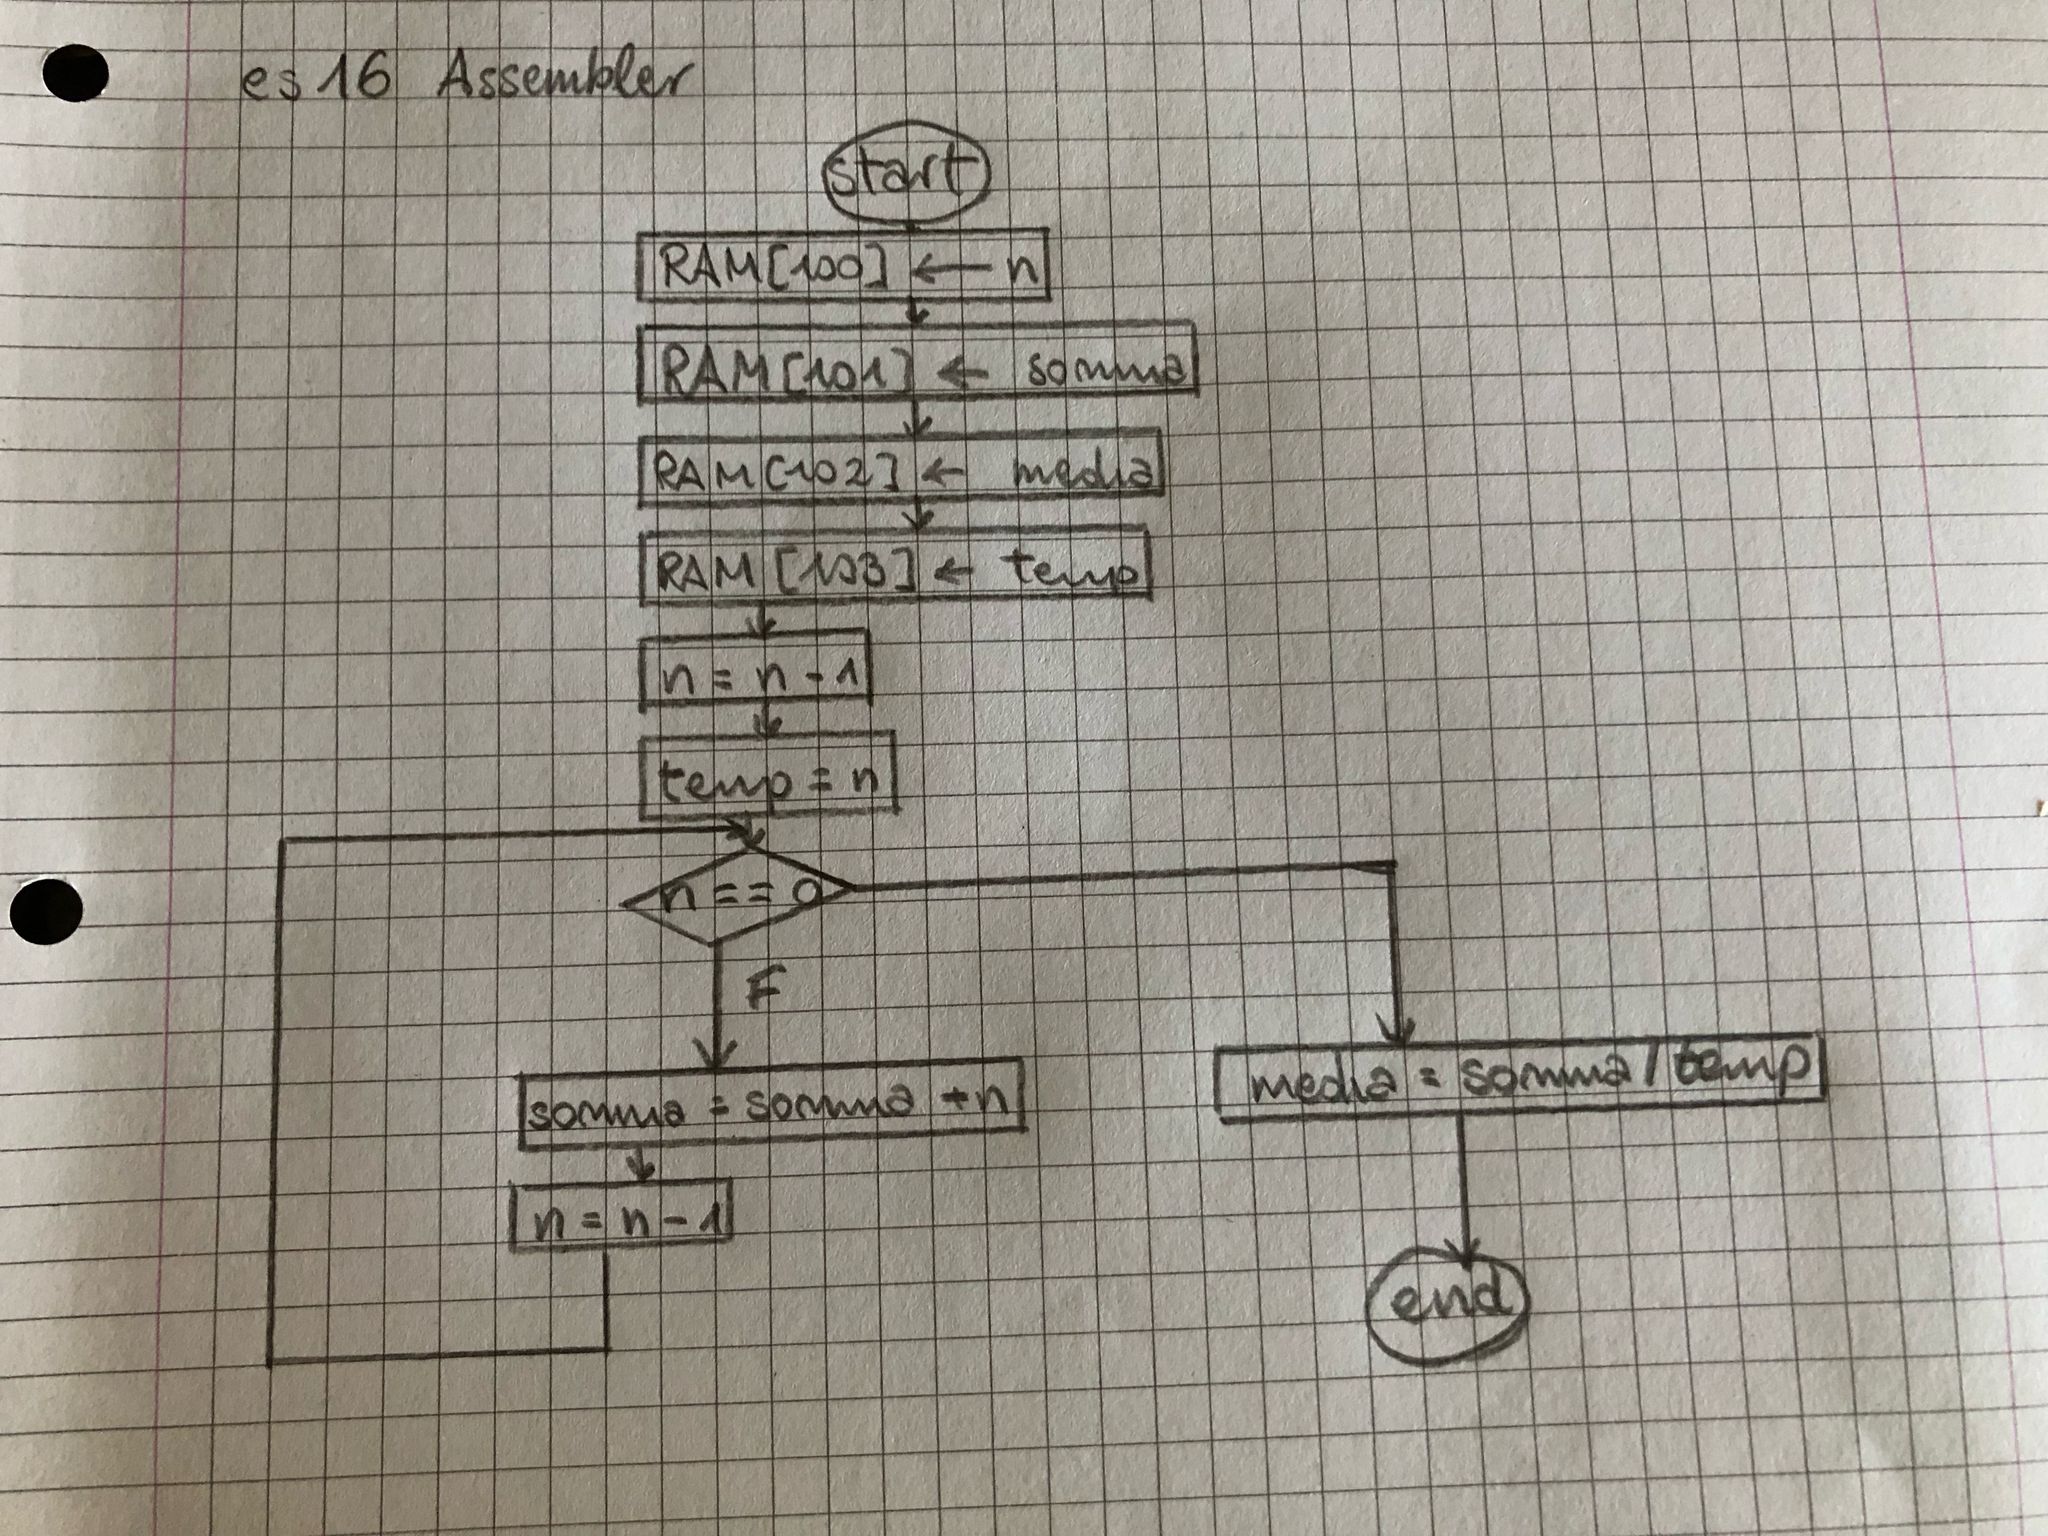 es 16 Assembler
start
RAM[100] ← n
RAM[101] ← somma
RAM[102] ← media
RAM[103] ← temp
n = n - 1
temp = n
n == 0
F
somma = somma + n
media = somma / temp
n = n - 1
end